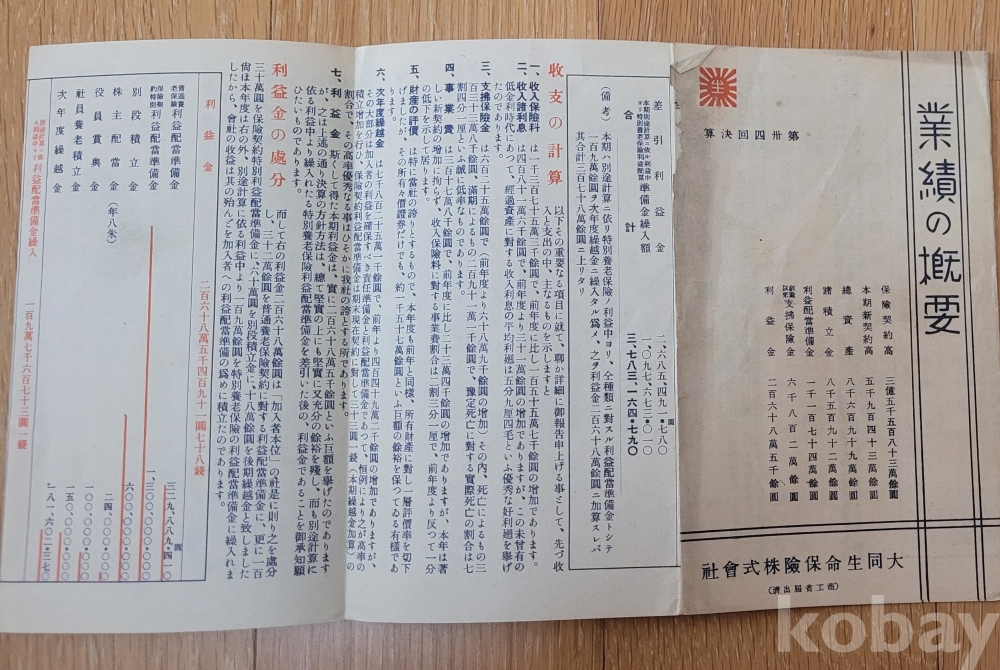 業績の概要
第卅四回決算
生
保險契約高 三億五千五百八十三萬餘圓
本期新契約高 五千九百四十三萬餘圓
總資產 八千六百九十九萬餘圓
諸積立金 八千五百九十二萬餘圓
利益配當準備金 一千一百七十四萬餘圓
創業以來支拂保險金 六千八百二萬餘圓
利益金 二百六十八萬五千餘圓
大同生命保險株式會社
(商工省屆出濟)
差引利益金 二、六八五、四九一・七八〇
本期別途計算ニ依ル利益中ヨリ特別養老保險利益配當準備金繰入額 一、〇九七、六七三・〇一〇
合計 三、七八三、一六四・七九〇
圓
(備考) 本期ハ別途計算ニ依リ特別養老保險ノ利益中ヨリ、仝種類ニ對スル利益配當準備金トシテ
一百九萬餘圓ヲ次年度繰越金ニ繰入タル爲メ、之ヲ利益金二百六十八萬餘圓ニ加算スレバ
其合計三百七十八萬餘圓ニ上リタリ
收支の計算
以下その重要なる項目に就て、聊か詳細に御報告申上げる事として、先づ收
入と支出の中、主なるものを示しますと
一、收入保險料 は一千三百七十五萬三千餘圓で、前年度に比し一百五十五萬七千餘圓の增加であります。
二、收入諸利息 は四百八十一萬六千餘圓で、前年度より三十一萬餘圓の增加でありますが、この未曾有の
低金利時代にあつて、經過資產に對する收入利息の平均利廻は五分九厘四毛といふ優秀な好利廻を擧げ
たのであります。
三、支拂保險金 は六百二十五萬餘圓で(前年度より六十八萬九千餘圓の增加)その內、死亡によるもの三
百三十三萬八千餘圓、滿期によるもの二百九十一萬一千餘圓で、豫定死亡に對する實際死亡の割合は七
割四分一厘といふ誠に低率なものであります。
四、事業費 は三百十七萬八千餘圓で、前年度に比し二十三萬四千餘圓の增加でありますが、本年は著
しい新契約の增加に拘らず、收入保險料に對する事業費割合は二割三分一厘で、前年度より反つて一分
の低下を示して居ります。
五、財產の評價 は特に當社の誇りとするもので、本年度も前年と同樣、所有財產に對し一層評價率を切下
げましたが、その所有々價證券だけでも、約一千五十七萬餘圓といふ巨額の餘裕を保つてゐる有樣であ
ります。
六、次年度繰越金 は七千八百二十五萬一千餘圓で、前年より四百四十九萬二千餘圓の增加でありますが、
その大部分は加入者の利益を確保すべき責任準備金と利益配當準備金であつて、恒例により之が高率の
積立增加を行ひ、保險契約利益配當準備金は期末現在契約に對し三十三圓一錢(本期繰越金加算)の
割合で、その高率優秀なる事はひそかに我社の誇とする所であります。
七、利益金 斯くして得た本期利益金は、實に二百六十八萬五千餘圓といふ巨額を擧げたのであります
が、之は上述の通り決算の方針方法は、總て堅實の上にも堅實に又充分の餘裕を殘し、而も別途計算に
依る利益中より繰入れたる特別養老保險利益配當準備金を差引いた後の、利益金であることを御承知願
ひたいものであります。
利益金の處分
而して右の利益金二百六十八萬餘圓は「加入者本位」の社是に則り之を處分
し、三十二萬餘圓を普通養老保險契約に對する利益配當準備金に、更に一百
三十萬圓を保險契約特別利益配當準備金に、六十萬圓を別段積立金に、十八萬餘圓を後期繰越金と致しました
尙ほ本年度は右の外、別途計算に依る利益中より一百九萬餘圓を特別養老保險の利益配當準備金に繰入れま
したから、會社の收益は其の殆んどを加入者への利益配當準備の爲めに積立たのであります。
利益金 二百六十八萬五千四百九十一圓七十八錢
圓
普通養老保險利益配當準備金 三二九、八八九・四一〇
保險契約特別利益配當準備金 一、三〇〇、〇〇〇・〇〇〇
別段積立金 六〇〇、〇〇〇・〇〇〇
株主配當金 (年八朱) 二四、〇〇〇・〇〇〇
役員賞與金 一〇〇、〇〇〇・〇〇〇
社員養老積立金 一五〇、〇〇〇・〇〇〇
次年度繰越金 一八一、六〇二・三七〇
別途計算ニ依ル利益中ヨリ利益配當準備金繰入 一百九萬七千六百七十三圓一錢
kobay